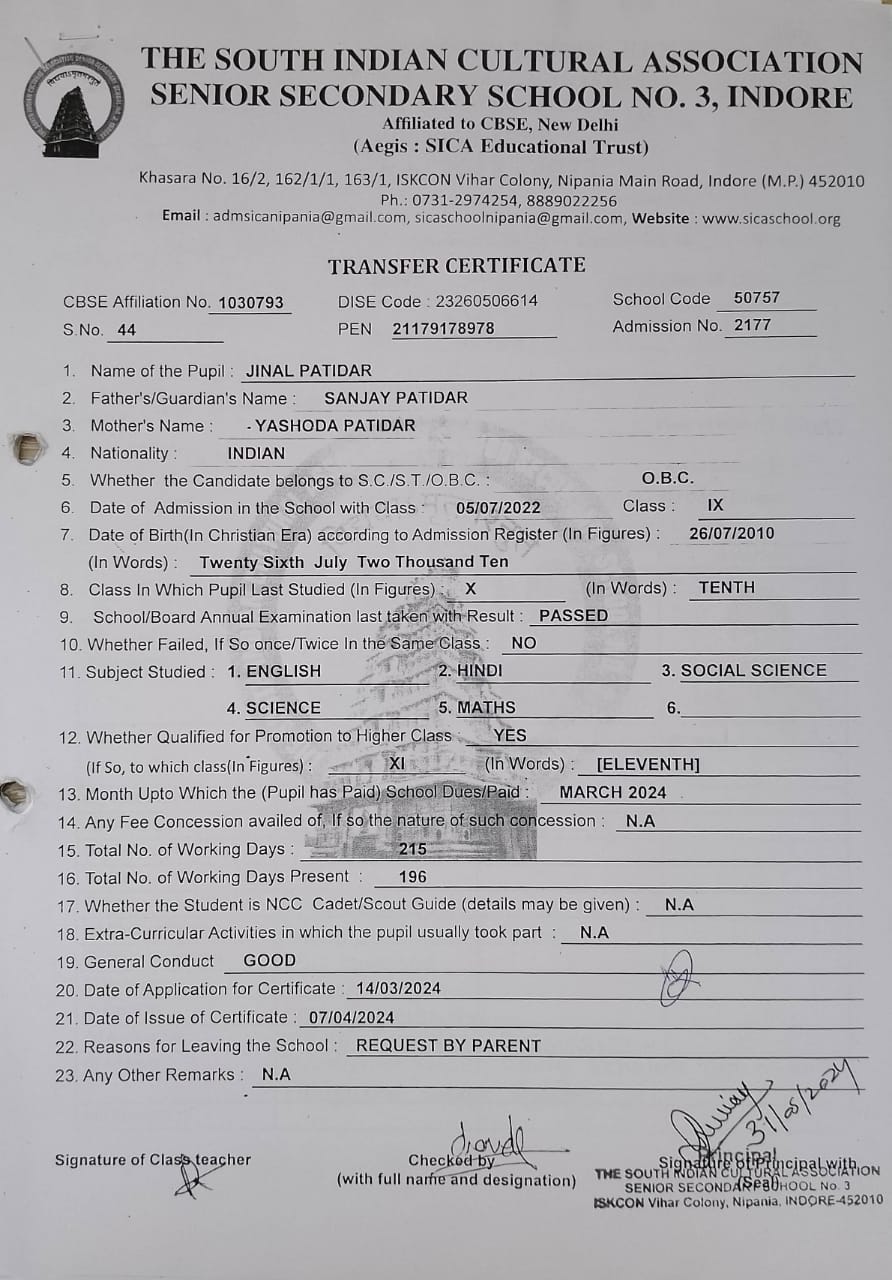 THE SOUTH INDIAN CULTURAL ASSOCIATION
SENIOR SECONDARY SCHOOL NO. 3, INDORE
Affiliated to CBSE, New Delhi
(Aegis : SICA Educational Trust)
Khasara No. 16/2, 162/1/1, 163/1, ISKCON Vihar Colony, Nipania Main Road, Indore (M.P.) 452010
Ph.: 0731-2974254, 8889022256
Email : admsicanipania@gmail.com, sicaschoolnipania@gmail.com, Website : www.sicaschool.org
TRANSFER CERTIFICATE
CBSE Affiliation No. 1030793 DISE Code : 23260506614 School Code 50757
S.No. 44 PEN 21179178978 Admission No. 2177
1. Name of the Pupil : JINAL PATIDAR
2. Father's/Guardian's Name : SANJAY PATIDAR
3. Mother's Name : YASHODA PATIDAR
4. Nationality : INDIAN
5. Whether the Candidate belongs to S.C./S.T./O.B.C. : O.B.C.
6. Date of Admission in the School with Class : 05/07/2022 Class : IX
7. Date of Birth(In Christian Era) according to Admission Register (In Figures) : 26/07/2010
(In Words) : Twenty Sixth July Two Thousand Ten
8. Class In Which Pupil Last Studied (In Figures) : X (In Words) : TENTH
9. School/Board Annual Examination last taken with Result : PASSED
10. Whether Failed, If So once/Twice In the Same Class : NO
11. Subject Studied : 1. ENGLISH 2. HINDI 3. SOCIAL SCIENCE
4. SCIENCE 5. MATHS 6.
12. Whether Qualified for Promotion to Higher Class : YES
(If So, to which class(In Figures) : XI (In Words) : [ELEVENTH]
13. Month Upto Which the (Pupil has Paid) School Dues/Paid : MARCH 2024
14. Any Fee Concession availed of, If so the nature of such concession : N.A
15. Total No. of Working Days : 215
16. Total No. of Working Days Present : 196
17. Whether the Student is NCC Cadet/Scout Guide (details may be given) : N.A
18. Extra-Curricular Activities in which the pupil usually took part : N.A
19. General Conduct GOOD
20. Date of Application for Certificate : 14/03/2024
21. Date of Issue of Certificate : 07/04/2024
22. Reasons for Leaving the School : REQUEST BY PARENT
23. Any Other Remarks : N.A
31/05/2024
Signature of Class teacher Checked by Signature of Principal with
(with full name and designation) (Seal)
Principal
THE SOUTH INDIAN CULTURAL ASSOCIATION
SENIOR SECONDARY SCHOOL No. 3
ISKCON Vihar Colony, Nipania, INDORE-452010